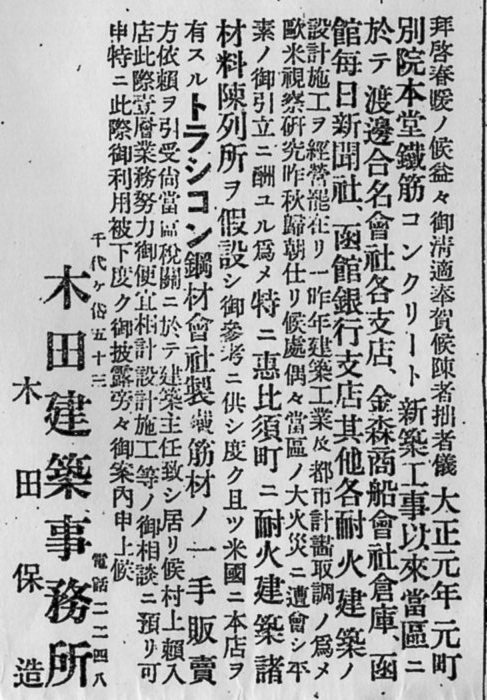 拜啓春暖ノ候益々御淸適奉賀候陳者拙者儀大正元年元町
別院本堂鐵筋コンクリート新築工事以來當區ニ
於テ渡邊合名會社各支店、金森商船會社倉庫、函
館每日新聞社、函館銀行支店其他各耐火建築ノ
設計施工ヲ經營罷在リ一昨年建築工業及都市計畵取調ノ爲メ
歐米視察硏究昨秋歸朝仕リ候處偶々當區ノ大火災ニ遭會シ平
素ノ御引立ニ酬ユル爲メ特ニ惠比須町ニ耐火建築諸
材料陳列所ヲ假設シ御參考ニ供シ度ク且ツ米國ニ本店ヲ
有スルトラシコン鋼材會社製鐵筋材ノ一手販賣
方依賴ヲ引受尙當區稅關ニ於テ建築主任致シ居リ候村上賴入
店此際壹層業務努力御便宜相計設計施工等ノ御相談ニ預リ可
申特ニ此際御利用被下度ク御披露旁々御案內申上候
千代ヶ岱五十三 電話二二四八
木田建築事務所
木田保造